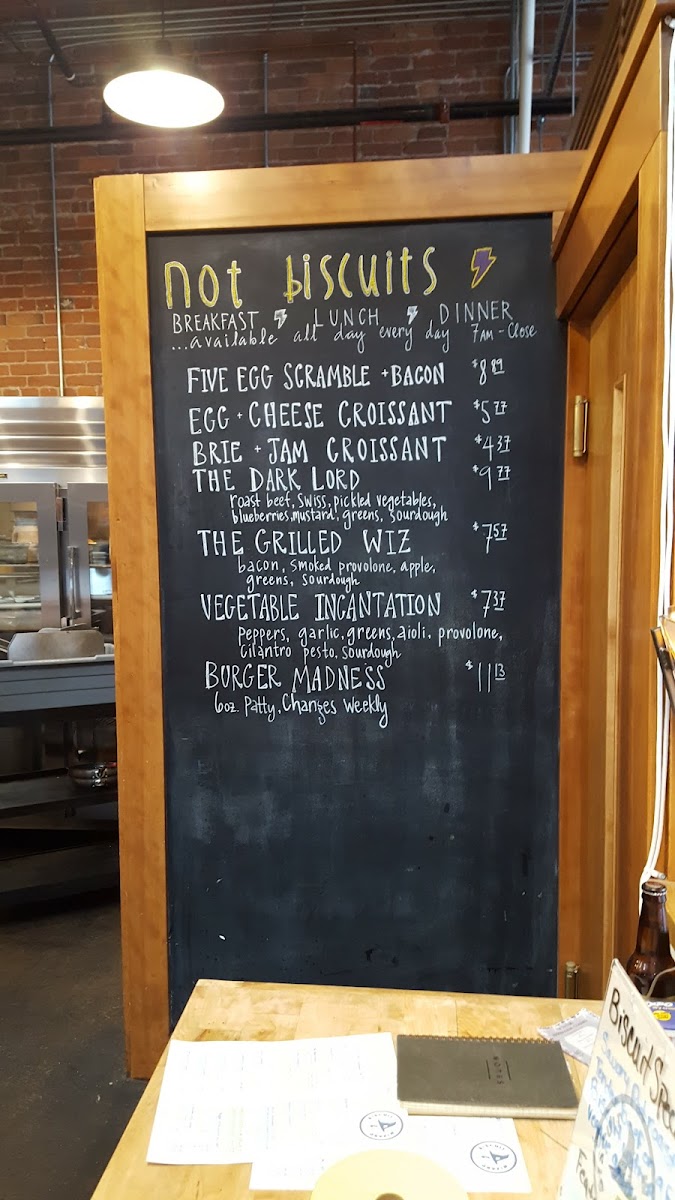 not biscuits
BREAKFAST LUNCH DINNER
...available all day every day 7AM - Close
FIVE EGG SCRAMBLE + BACON $8 89
EGG + CHEESE CROISSANT $5 77
BRIE + JAM CROISSANT $4 37
THE DARK LORD $9 77
roast beef, Swiss, pickled vegetables,
blueberries, mustard, greens, sourdough
THE GRILLED WIZ $7 57
bacon, smoked provolone, apple,
greens, sourdough
VEGETABLE INCANTATION $7 37
Peppers, garlic, greens, aioli, provolone,
Cilantro pesto, Sourdough
BURGER MADNESS $11 13
6oz. Patty, Changes Weekly
NOTES
Biscuit Spec